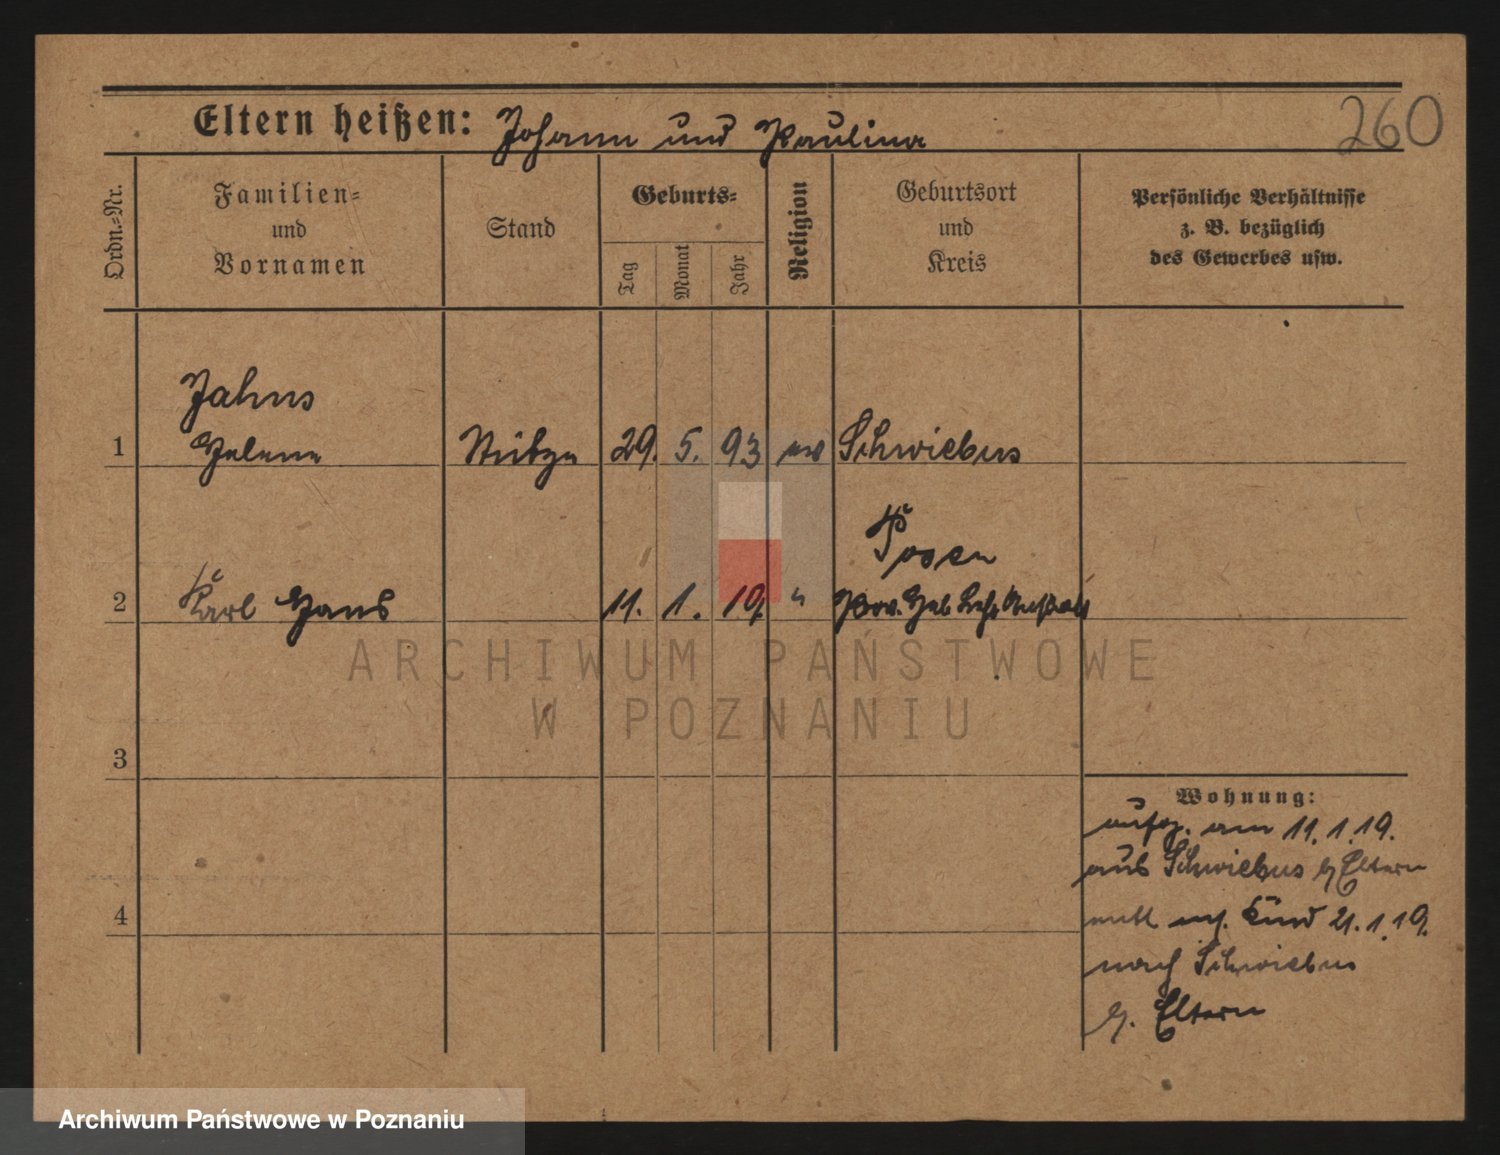 Eltern heißen: Johann und Paulina
260
Ordn.-Nr.
Familien-
und
Vornamen
Stand
Geburts-
Tag
Monat
Jahr
Religion
Geburtsort
und
Kreis
Persönliche Verhältnisse
z. B. bezüglich
des Gewerbes usw.
Jahns
1 Helene Stütze 29. 5. 93 ev Schwiebus
Posen
2 Karl Hans 11. 1. 19. " Prov. Heb. Lehr Anstalt
3
4
Wohnung:
am 11.1.19.
aus Schwiebus Eltern
Kind 21.1.19.
nach Schwiebus
z. Eltern
ARCHIWUM PAŃSTWOWE
W POZNANIU
Archiwum Państwowe w Poznaniu